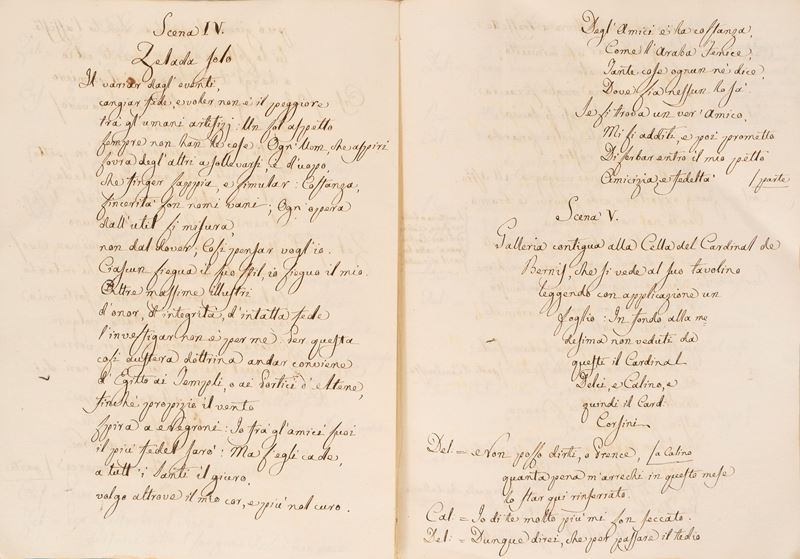 Scena IV.
Zelada solo
Il variar dagl'eventi,
cangiar fede, e voler non è il peggiore
trà gl'umani artifizj. Un sol aspetto
sempre non han le cose. Ogn'Uom, che aspiri
sovra degl'altri a sollevarsi, è d'uopo
che finger sappia, e simular: Costanza,
sincerità son nomi vani; Ogn'opera
dall'util si misura,
non dal dover, Così pensar vogl'io.
Ciascun siegua il suo stil, io sieguo il mio.
Altre massime illustri
d'onor, d'integrità, d'intatta fede
l'investigar non è per me. Per questa
così austera dottrina andar conviene
d'Egitto ai Tempoli, o ai Portici d'Atene,
finchè propizio il vento
spira a Negroni: Io trà gl'amici suoi
il più fedel sarò: Ma s'egli cade,
a tutt'i Santi il giuro,
volgo altrove il mio cor, e più nol curo.
Degl'Amici è la costanza,
Come l'Araba Fenice,
Tante cose ognun ne dice,
Dove sia nessun lo sà.
Se si trova un ver'Amico,
Mi si additi, e poi prometto
Di serbar entro il mio petto
Amicizia, e fedeltà /parte
Scena V.
Galleria contigua alla Cella del Cardinal de
Bernis, che si vede al suo tavolino
leggendo con applicazione un
foglio: In fondo alla me
desima non veduti da
questi il Cardinal
Delci, e Calino, e
quindi il Card.
Corsini
Del: = Non posso dirti, o Prence, /a Calino
quanta pena m'arrechi in questo mese
lo star qui rinserrato.
Cal = Io di te molto più mi son seccato.
Del: = Dunque direi, che per passare il tedio